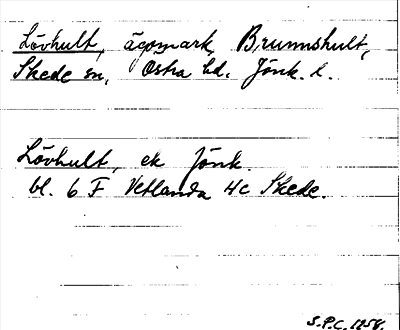 Lövhult, ägomark, Brunnshult,
Skede sn, Östra hd. Jönk. l.
Lövhult, ek Jönk.
bl. 6 F Vetlanda 4c Skede.
S.P.C. 1258.